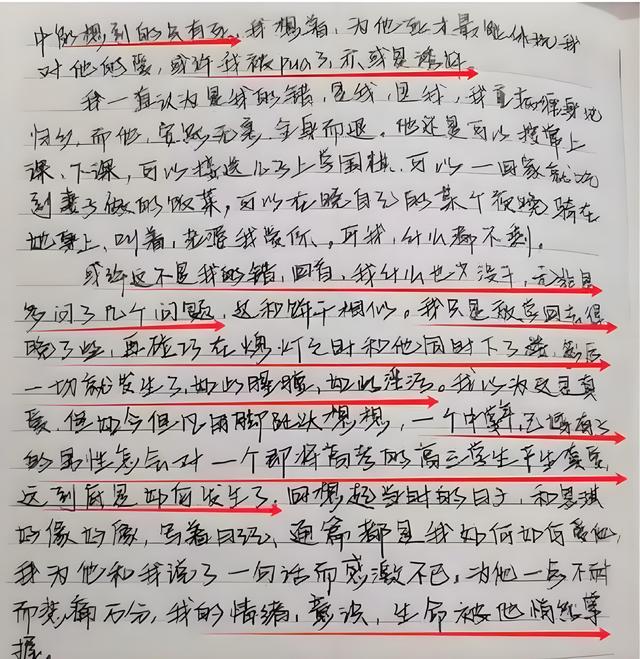 中能想到的只有死，我想着，为他死才最能体现我
对他的爱，或许我被pua了，亦或是洗脑。
我一直认为是我的错，是我，是我，我直
归乡，而他，安然无恙，全身而退。他还是可以按常上
课、下课，可以接送儿子上学围棋，可以一回家就吃
到妻子做的饭菜，可以在晚自习的某个夜晚骑在
她身上，叫着，老婆我爱你，可我，什么都不剩。
或许这不是我的错，回首，我什么也没干，无非是
多问了几个问题，这和饼干相似。我只是放学回去得
晚了些，再碰巧在熄灯之时和他同时下了楼，然后
一切就发生了，如此朦胧，如此。我以为这是真
爱，但如今但凡用脚趾头想想，一个中年已婚有子
的男性怎会对一个即将高考的高三学生产生真爱，
这到底是如何发生了。回想起当时的日子，和思琪
好像好像，写着日记，通篇都是我如何如何爱他，
我为他和我说了一句话而感激不已，为他一点不耐
而悲痛万分，我的情绪，意识，生命被他悄然掌
握。